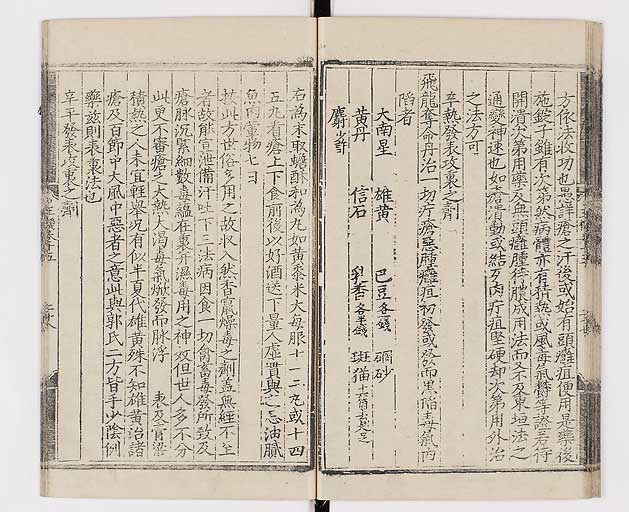 方依法收功也愚詳瘡之汗後或始有頭癰疽便用是藥後
施錠子雖有次第然病體亦有積熱或風毒氣鬱等證若待
開潰次第用藥及無頭癰腫待膿成用法而又不及東垣法之
通變神速也如瘡潰動或結歹肉疔疽堅硬却次第用外治
之法方可
辛熱發表攻裏之劑
飛龍奪命丹治一切疔瘡惡腫癰疽初發或發而黑陷毒氣內
陷者
大南星 雄黃 巴豆各錢 硇砂
黃丹 信石 乳香各半錢 斑猫
麝香
右為末取蟾酥和為丸如黃黍米大每服十一二丸或十四
五丸看瘡上下食前後以好酒送下量人虛實與之忌油膩
魚肉葷物七日
按此方世俗多用之故收入然香竄燥毒之劑蓋無經不至
者故能宣泄備汗吐下三法病因食一切禽畜毒發所致及
瘡脉沉緊細數毒蘊在裏并濕毒用之神效但世人多不分
此更不審瘡之大熱大渴毒氣焮發而脉浮 表及膏粱
積熱之人未宜輕舉況有似半夏代雄黃殊不知雄黃治諸
瘡及百節中大風中惡者之意此與郭氏二方皆手少陰例
藥茲則表裏法也
辛平發表攻裏之劑